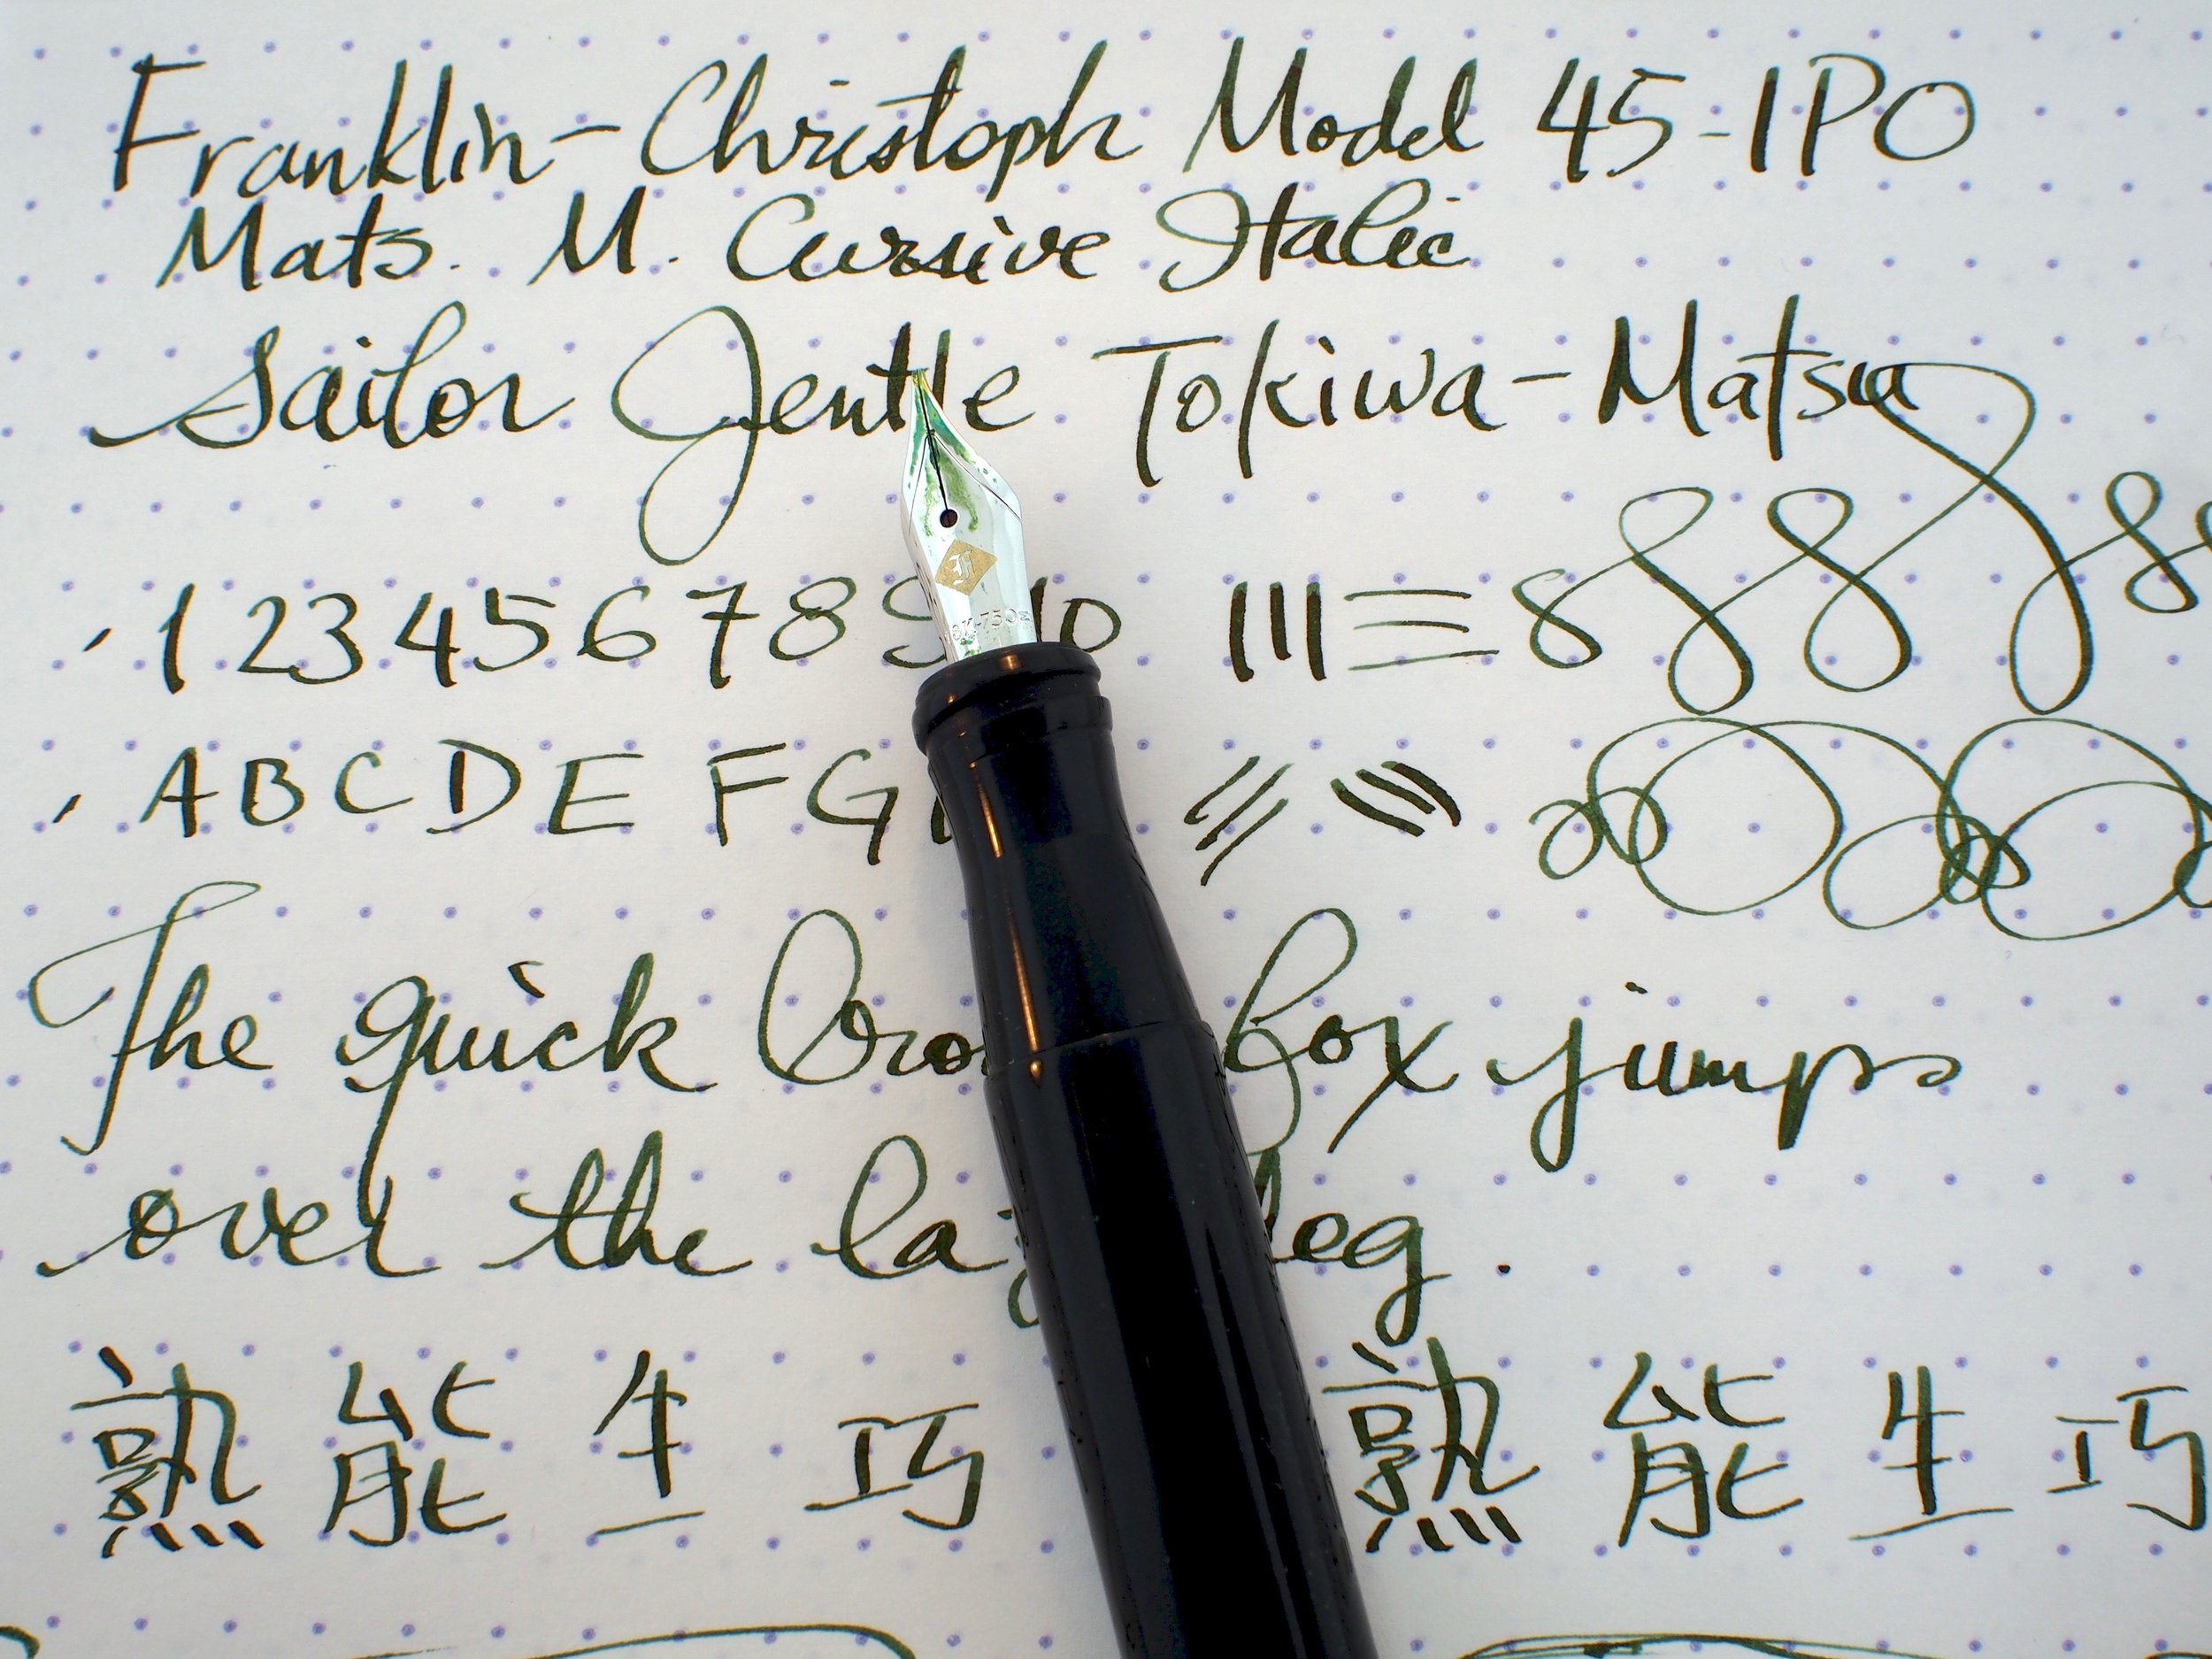 Franklin-Christoph Model 45-IPO
Mats. M. Cursive Italic
Sailor Jentle Tokiwa-Matsu
1 2 3 4 5 6 7 8 9 10 8 8 8 8 8
A B C D E F G
The quick fox jumps
over the
熟能生巧 熟能生巧